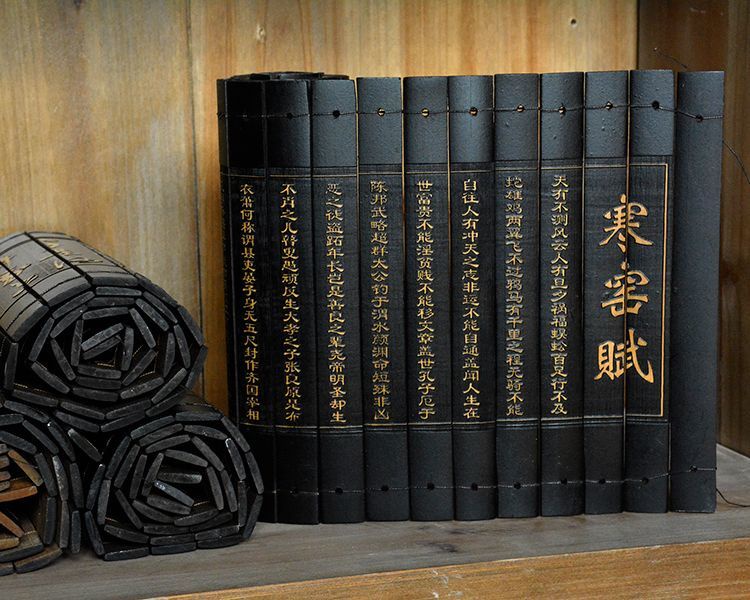 寒窑赋
天有不测风云人有旦夕祸福蜈蚣百足行不及
蛇雄鸡两翼飞不过鸦马有千里之程无骑不能
自往人有冲天之志非运不能自通盖闻人生在
世富贵不能淫贫贱不能移文章盖世孔子厄于
陈邦武略超群太公钓于渭水颜渊命短殊非凶
恶之徒盗跖年长岂是善良之辈尧帝明圣却生
不肖之儿瞽叟愚顽反生大孝之子张良原是布
衣萧何称谓县吏晏子身无五尺封作齐国宰相